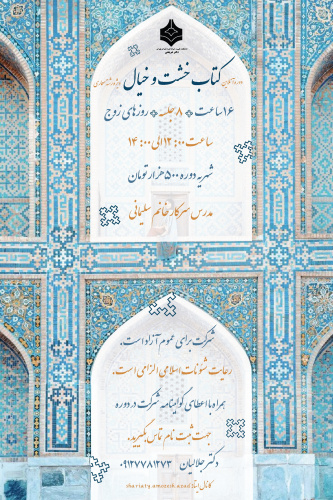 دوره آنلاین کتاب خشت و خیال ویژه رشته معماری
۱۶ ساعت * ۸ جلسه * روزهای زوج
ساعت ۱۲:۰۰ الی ۱۴:۰۰
شهریه دوره ۵۰۰ هزار تومان
مدرس سرکار خانم سلیمانی
شرکت برای عموم آزاد است.
رعایت شئونات اسلامی الزامی است.
همراه با اعطای گواهینامه شرکت در دوره
جهت ثبت نام تماس بگیرید.
دکتر جلالیان ۰۹۱۲۷۷۸۱۲۷۳
shariaty.amoozesh.azad